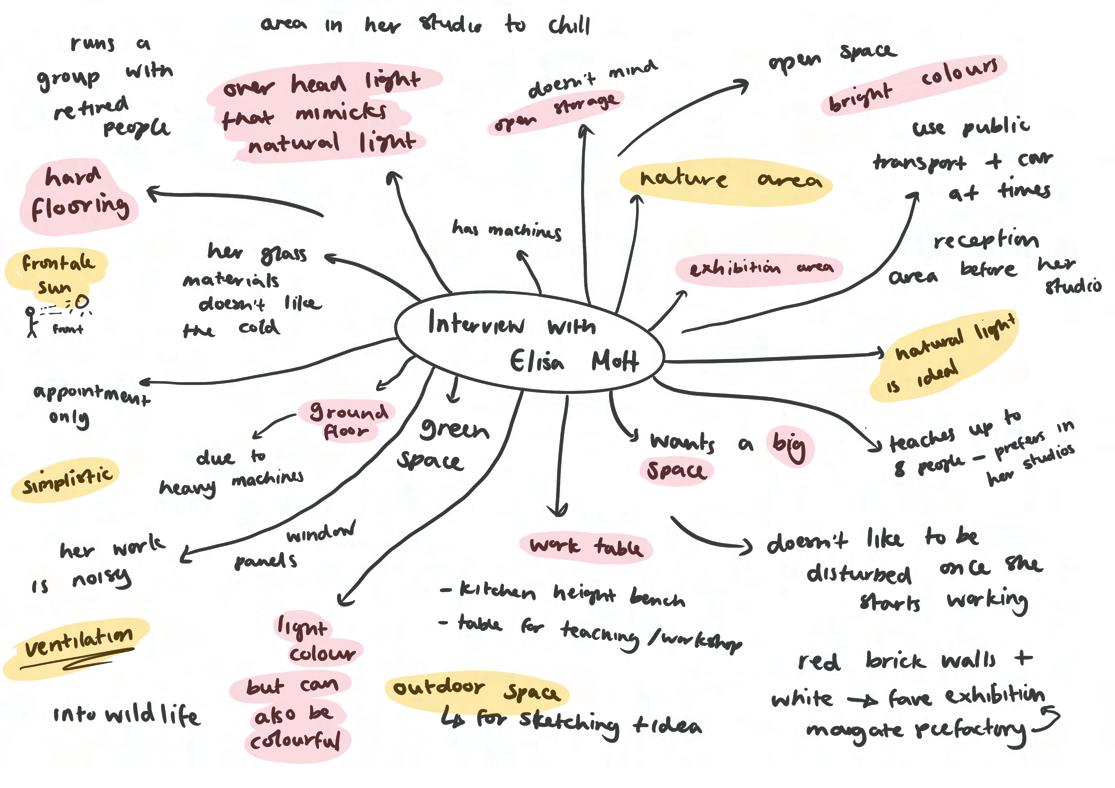 area in her studio to chill
runs a
group with
retired
people
over head light
that mimicks
natural light
doesn't mind
open storage
open space
bright colours
use public
transport + car
at times
nature area
hard
flooring
has machines
her glass
materials
doesn't like
the cold
frontale
sun
front
exhibition area
reception
area before her
studio
Interview with
Elisa Mott
natural light
is ideal
appointment
only
ground
floor
due to
heavy machines
green
space
wants a big
space
teaches up to
8 people - prefers in
her studios
simplistic
her work
is noisy
window
panels
work table
- kitchen height bench
- table for teaching/workshop
doesn't like to be
disturbed once she
starts working
ventilation
light
colour
but can
also be
colourful
outdoor space
↳ for sketching + idea
into wildlife
red brick walls +
white → fave exhibition
margate